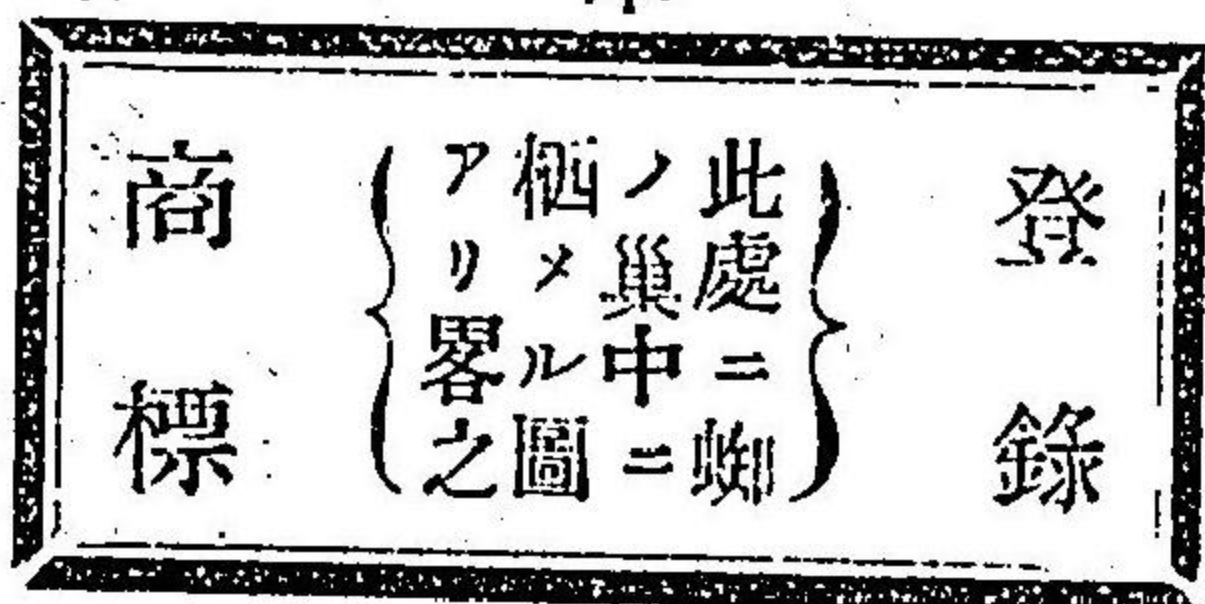 登錄
此處ニ蜘
ノ巢中ニ
栖メル圖
アリ畧之
商標